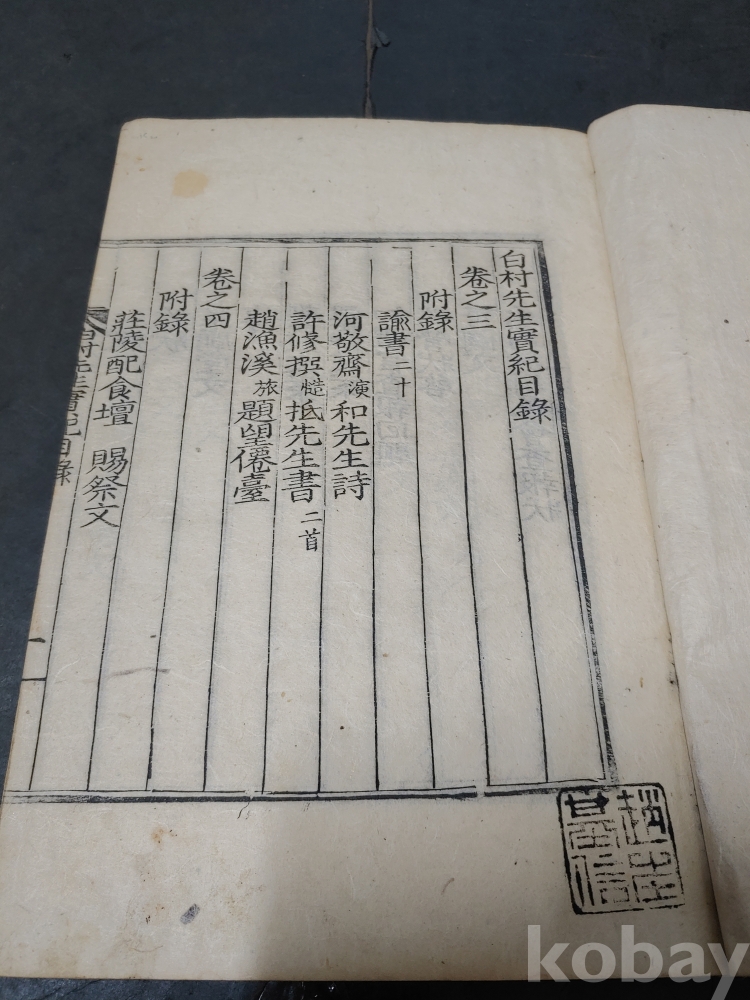 白村先生實紀目錄
卷之三
附錄
諭書二十
河敬齋演和先生詩
許修撰慥抵先生書二首
趙漁溪旅題望僊臺
卷之四
附錄
莊陵配食壇 賜祭文
村先生實紀目錄
一
kobay